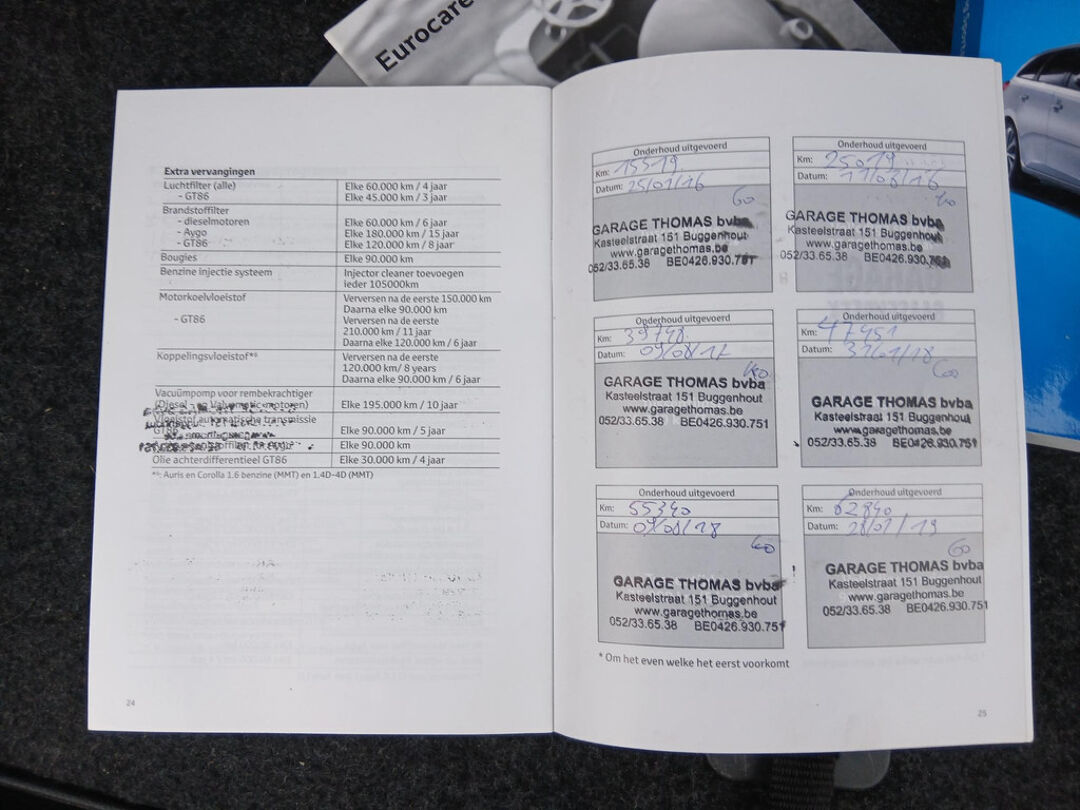 Eurocare
Extra vervangingen
Luchtfilter (alle) Elke 60.000 km / 4 jaar
- GT86 Elke 45.000 km / 3 jaar
Brandstoffilter
- dieselmotoren Elke 60.000 km / 6 jaar
- Aygo Elke 180.000 km / 15 jaar
- GT86 Elke 120.000 km / 8 jaar
Bougies Elke 90.000 km
Benzine injectie systeem Injector cleaner toevoegen
ieder 105000km
Motorkoelvloeistof Verversen na de eerste 150.000 km
Daarna elke 90.000 km
- GT86 Verversen na de eerste
210.000 km / 11 jaar
Daarna elke 120.000 km / 6 jaar
Koppelingsvloeistof*⁵ Verversen na de eerste
120.000 km/ 8 years
Daarna elke 90.000 km / 6 jaar
Vacuümpomp voor rembekrachtiger
(Diesel - en Valvematic-motoren) Elke 195.000 km / 10 jaar
Vloeistof automatische transmissie
GT86 Elke 90.000 km / 5 jaar
Elke 90.000 km
Olie achterdifferentieel GT86 Elke 30.000 km / 4 jaar
*⁵: Auris en Corolla 1.6 benzine (MMT) en 1.4D-4D (MMT)
24
Onderhoud uitgevoerd
Km: 15519
Datum: 25/01/16
60
GARAGE THOMAS bvba
Kasteelstraat 151 Buggenhout
www.garagethomas.be
052/33.65.38 BE0426.930.751
Onderhoud uitgevoerd
Km: 25019
Datum: 11/08/16
GARAGE THOMAS bvba
Kasteelstraat 151 Buggenhout
www.garagethomas.be
052/33.65.38 BE0426.930.751
Onderhoud uitgevoerd
Km: 39748
Datum: 09/08/17
GARAGE THOMAS bvba
Kasteelstraat 151 Buggenhout
www.garagethomas.be
052/33.65.38 BE0426.930.751
Onderhoud uitgevoerd
Km: 47451
Datum: 31/01/18
60
GARAGE THOMAS bvba
Kasteelstraat 151 Buggenhout
www.garagethomas.be
052/33.65.38 BE0426.930.751
Onderhoud uitgevoerd
Km: 55340
Datum: 09/08/18
60
GARAGE THOMAS bvba
Kasteelstraat 151 Buggenhout
www.garagethomas.be
052/33.65.38 BE0426.930.751
Onderhoud uitgevoerd
Km: 62840
Datum: 28/01/19
60
GARAGE THOMAS bvba
Kasteelstraat 151 Buggenhout
www.garagethomas.be
052/33.65.38 BE0426.930.751
* Om het even welke het eerst voorkomt
25